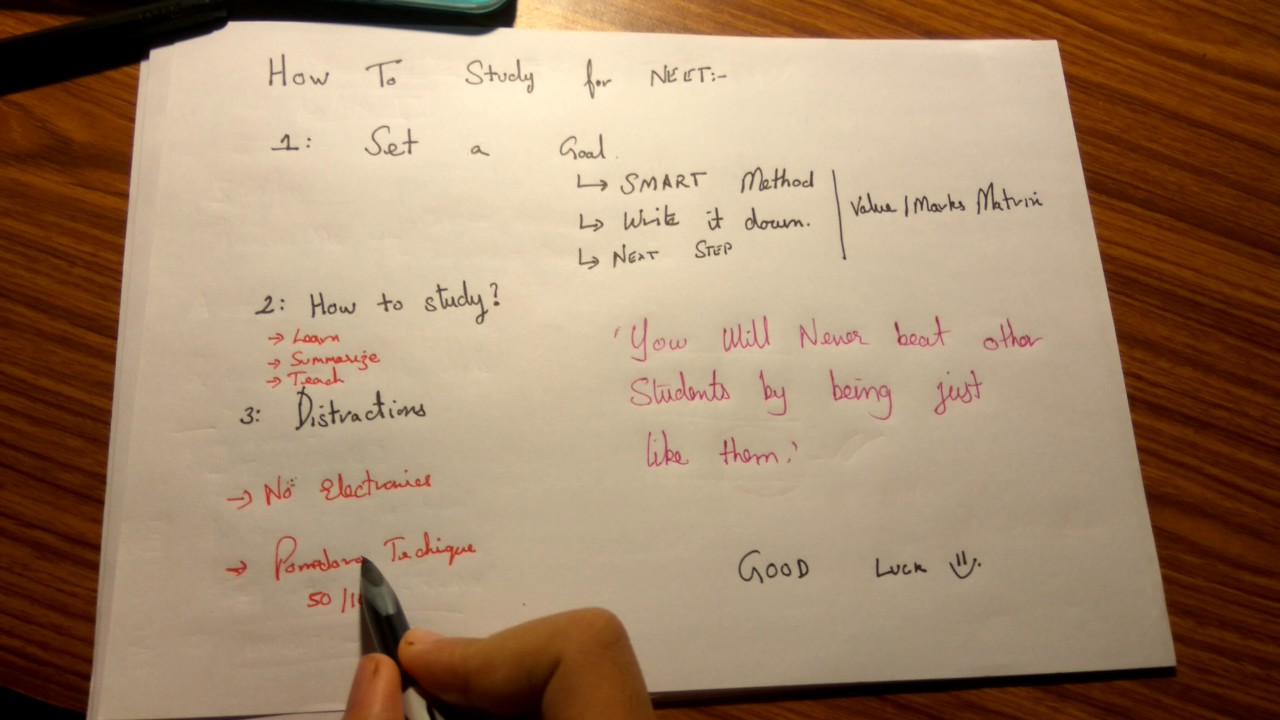 How To Study for NEET:-
1: Set a Goal.
↳ SMART Method
↳ Write it down.
↳ NEXT STEP
Value/Marks Matrix
2: How to study?
→ Learn
→ Summarize
→ Teach
3: Distractions
→ No Electronics
→ Pomodoro Techique
50/1
'You Will Never beat other
Students by being just
like them.'
GOOD LUCK